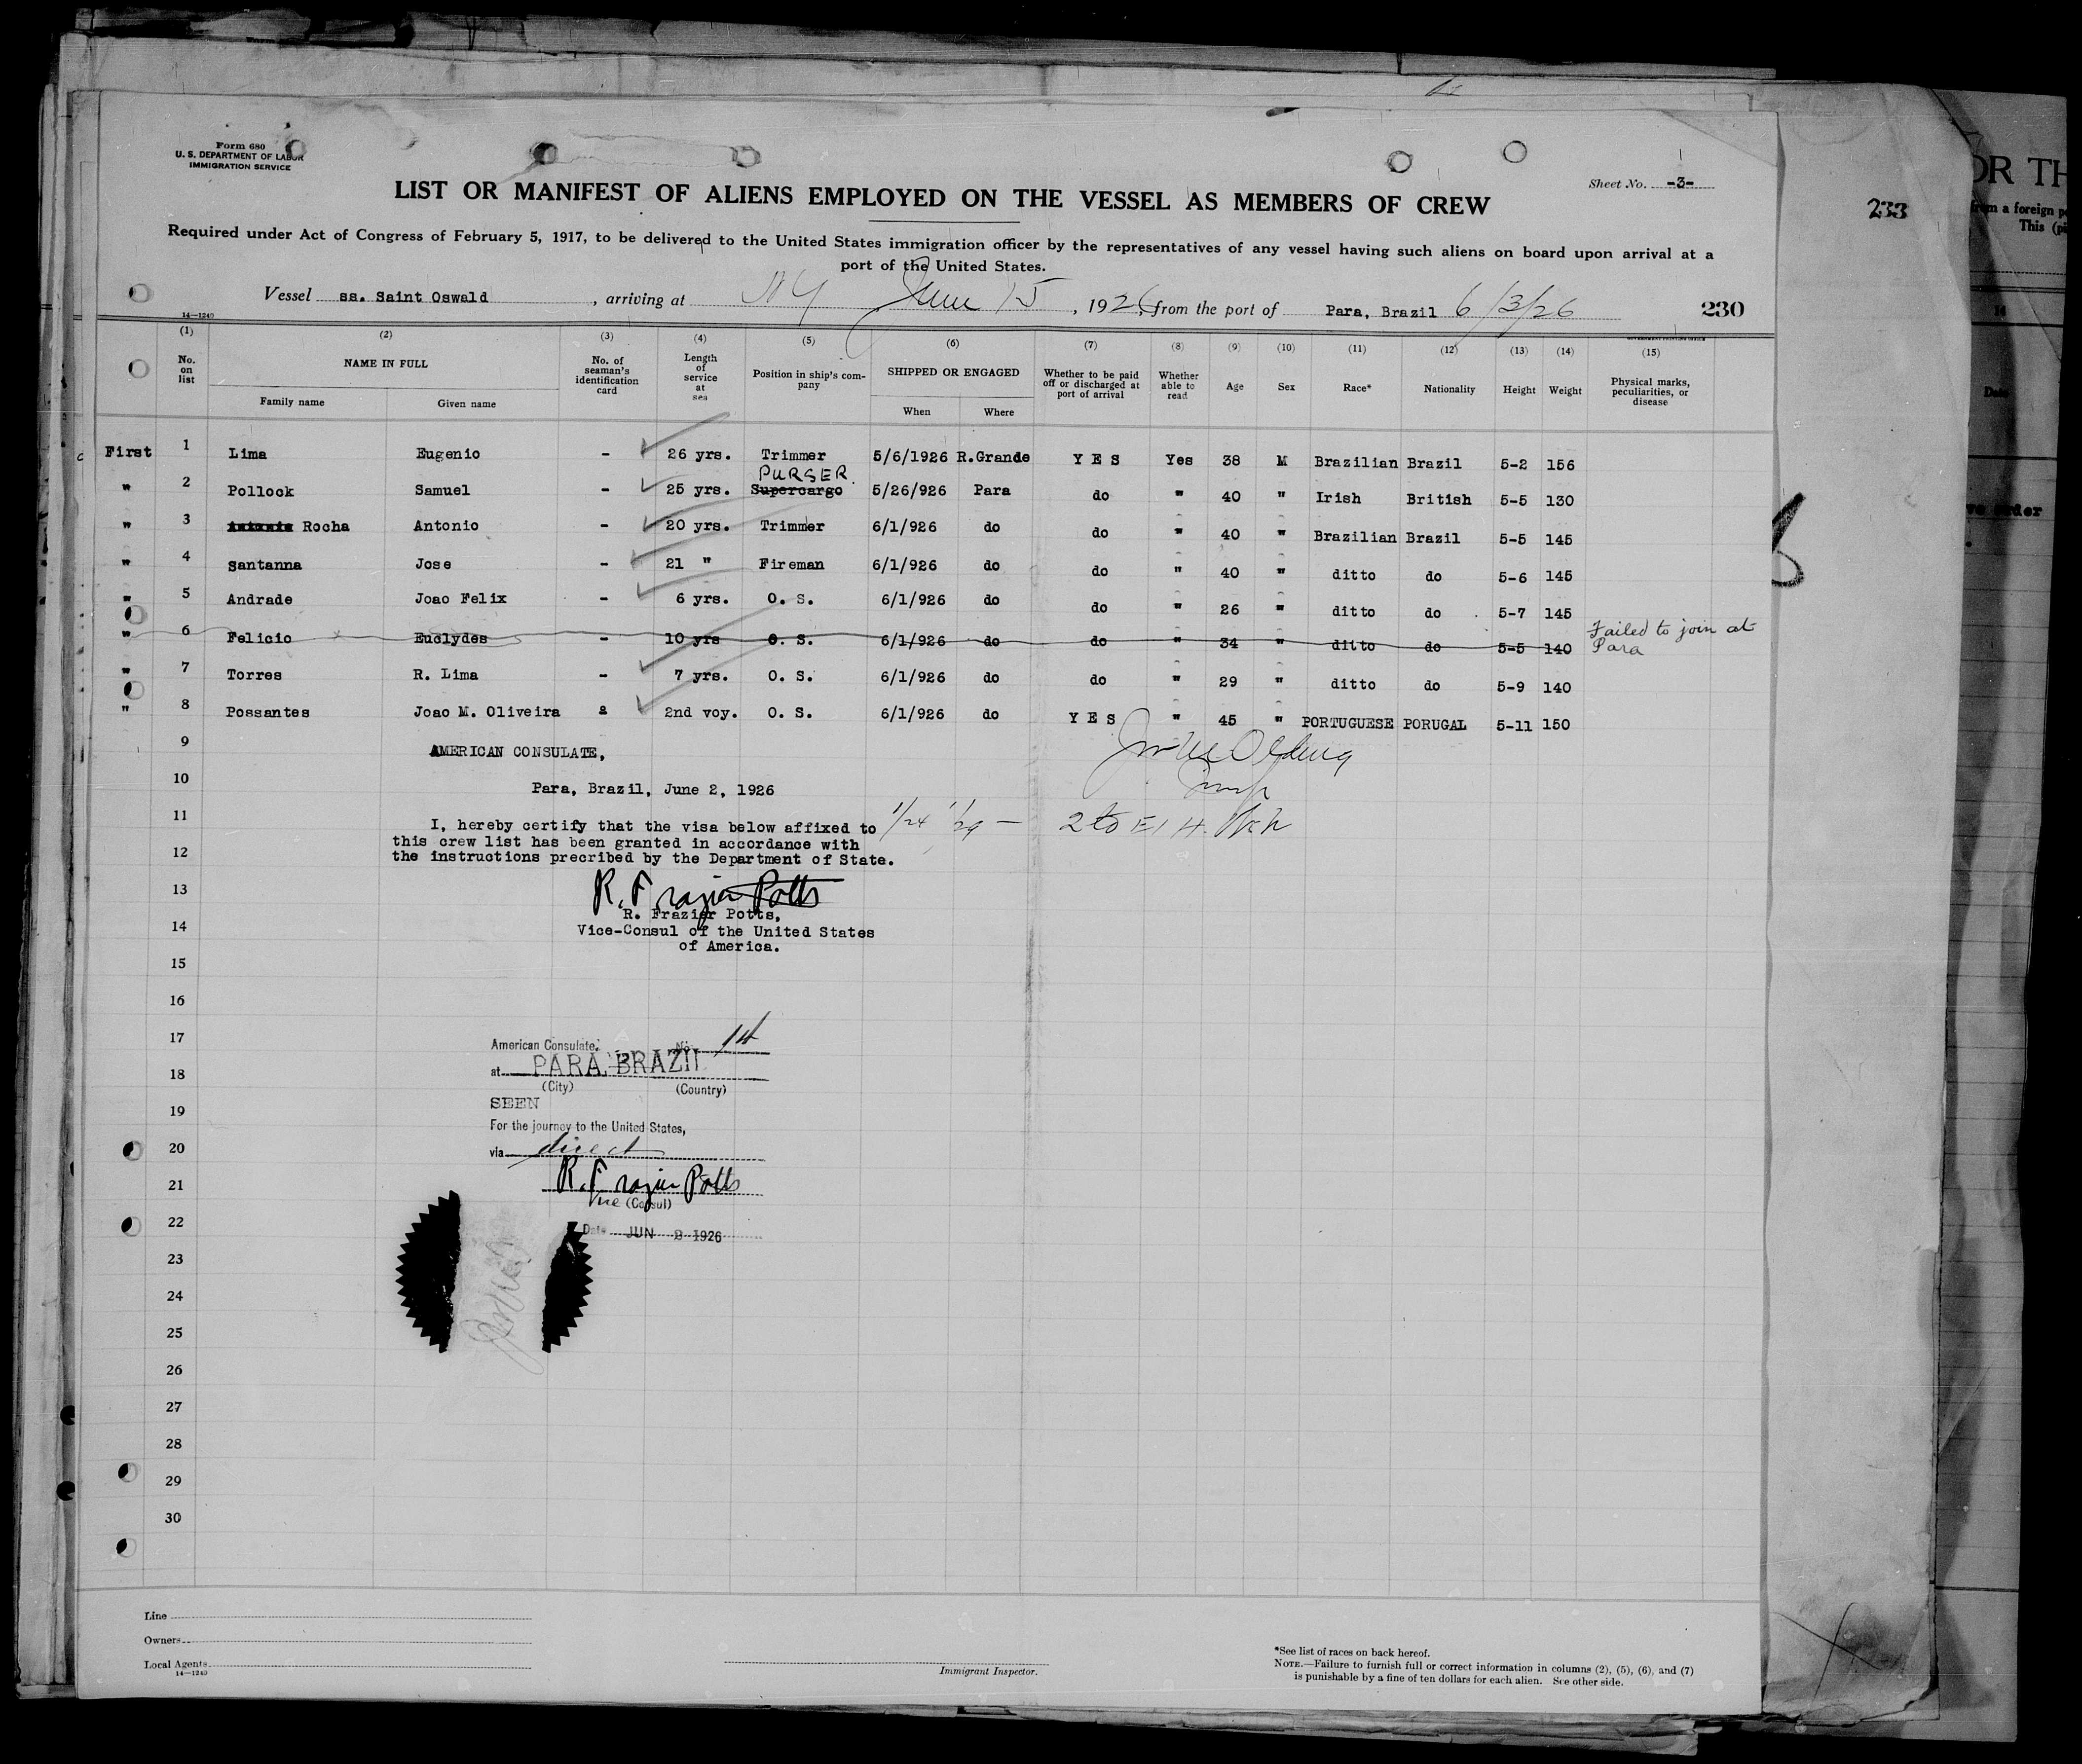 Form 680
U. S. DEPARTMENT OF LABOR
IMMIGRATION SERVICE
Sheet No. -3-
LIST OR MANIFEST OF ALIENS EMPLOYED ON THE VESSEL AS MEMBERS OF CREW
233
Required under Act of Congress of February 5, 1917, to be delivered to the United States immigration officer by the representatives of any vessel having such aliens on board upon arrival at a
port of the United States.
Vessel ss. Saint Oswald , arriving at NY June 15 , 1926, from the port of Para, Brazil 6/3/26 230
14—1240
(1) (2) (3) (4) (5) (6) (7) (8) (9) (10) (11) (12) (13) (14) (15)
No. on list NAME IN FULL Family name Given name No. of seaman's identification card Length of service at sea Position in ship's company SHIPPED OR ENGAGED When Where Whether to be paid off or discharged at port of arrival Whether able to read Age Sex Race* Nationality Height Weight Physical marks, peculiarities, or disease
First 1 Lima Eugenio - 26 yrs. Trimmer 5/6/1926 R.Grande Y E S Yes 38 M Brazilian Brazil 5-2 156
PURSER
" 2 Pollock Samuel - 25 yrs. Supercargo 5/26/926 Para do " 40 " Irish British 5-5 130
" 3 Rocha Antonio - 20 yrs. Trimmer 6/1/926 do do " 40 " Brazilian Brazil 5-5 145
" 4 Santanna Jose - 21 " Fireman 6/1/926 do do " 40 " ditto do 5-6 145
" 5 Andrade Joao Felix - 6 yrs. O. S. 6/1/926 do do " 26 " ditto do 5-7 145
" 6 Felicio Euclydes - 10 yrs O. S. 6/1/926 do do " 34 " ditto do 5-5 140 Failed to join at Para
" 7 Torres R. Lima - 7 yrs. O. S. 6/1/926 do do " 29 " ditto do 5-9 140
" 8 Possantes Joao M. Oliveira 2nd voy. O. S. 6/1/926 do Y E S " 45 " PORTUGUESE PORUGAL 5-11 150
9 AMERICAN CONSULATE,
10 Para, Brazil, June 2, 1926
11 I, hereby certify that the visa below affixed to
this crew list has been granted in accordance with
12 the instructions precribed by the Department of State.
13 R. Frazier Potts
R. Frazier Potts,
14 Vice-Consul of the United States
of America.
15
16
17 American Consulate, No. 14
18 at PARA, BRAZIL
(City) (Country)
19 SEEN
For the journey to the United States,
20 via direct
21 R. Frazier Potts
Vice (Consul)
22 Date JUN 2 1926
23
24
25
26
27
28
29
30
Line
Owners
Local Agents
14—1240
Immigrant Inspector.
*See list of races on back hereof.
NOTE.—Failure to furnish full or correct information in columns (2), (5), (6), and (7)
is punishable by a fine of ten dollars for each alien. See other side.